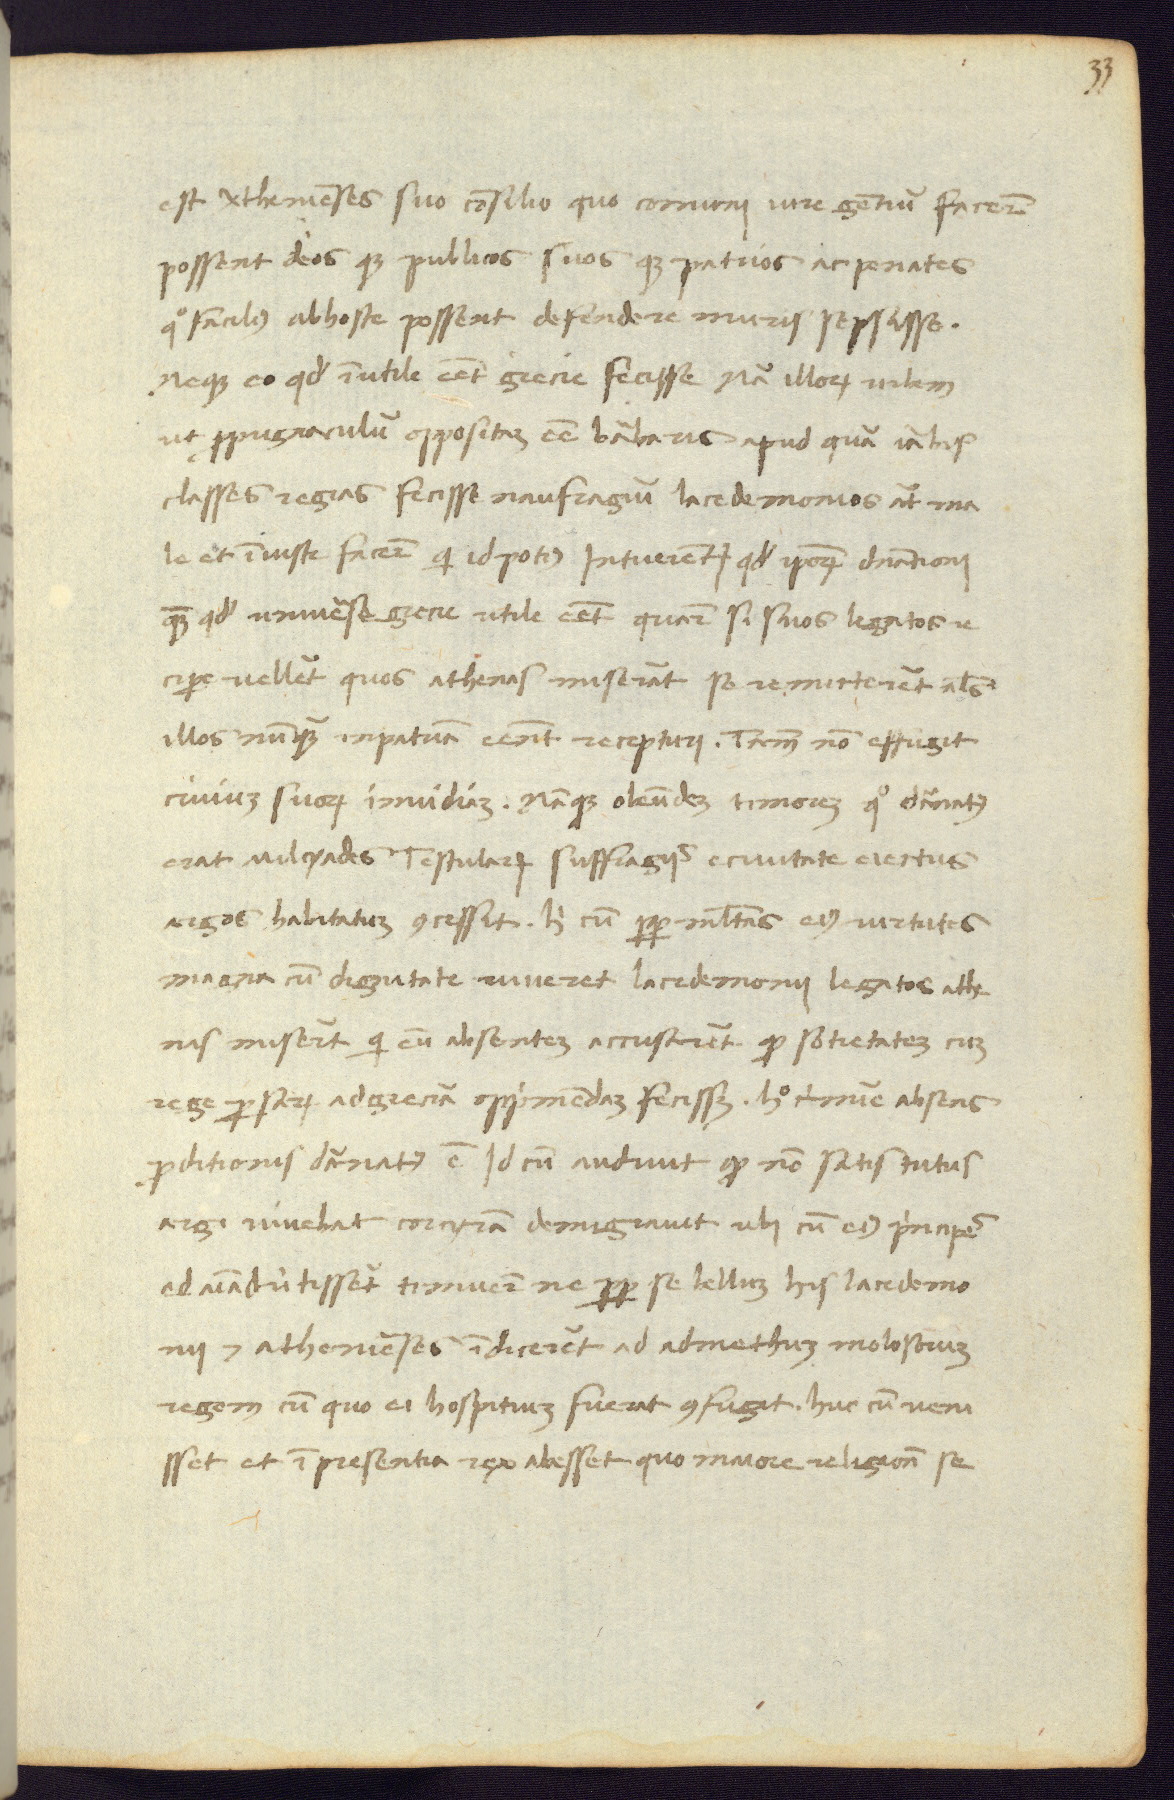 33
est Athenie̅ses suo co̅silio quo comuni iure gentiu̅ facer̅
possent deos qȝ publicos suos qȝ patrios ac penates
qͦ facilꝰ ab hoste possent defendere muris sepsisse.
Neqȝ eo qd̛ i̅utile ee̅t grecie fecisse Na̅ illoꝝ urbem
ut ꝓpugnaculu̅ oppositaȝ ee̅ ba̅baris apud qua̅ ia̅ bis
classes regias fecisse naufragiu̅ lacedemonios at̅ ma
le et i̅iuste facer̅ qi id potiꝰ intuerent̅ qd̛ ipoꝝ dn̅ationi
qȝ̅ qd̛ uniue̅se grecie utile eet̅ quar̅ si suos legatos re
cipe uelle̅t quos athenas misera̅t se remitteret̅ als̅
illos nu̅qȝ̅ in patria̅ eent̅ recepturi. Tam̅ no̅ effugit
ciuiuȝ suoꝝ inuidiaȝ. Na̅qȝ ob eu̅deȝ timoreȝ qͦ da̅natꝰ
erat milcyades Testulaꝝ suffragijs e ciuitate eiectus
argos habitatuȝ ꝯcessit. hi̅ cu̅ ꝓpꝑ ml̅tas eiꝰ uirtutes
magna cu̅ dignitate uiueret lacedemonij legatos athe
nas miser̅t qi eu̅ absenteȝ accusare̅t qꝫ sotietateȝ cuȝ
rege ꝑsaꝝ ad grecia̅ oppimenda̅ȝ fecissȝ. hͦ crimie̅ absens
ꝓditionis da̅natꝰ e̅ Id cu̅ audiuit qꝫ no̅ satis tutus
argi uiuebat corcira̅ demigrauit ubi cu̅ eiꝰ pincipes
ad aiad̅utisset̅ timuer̅ ne ꝓpꝑ se belluȝ his lacedemo
nij ⁊ athenie̅ses i̅dicere̅t ad admethuȝ molosoruȝ
regem cu̅ quo ei hospitiuȝ fuerat ꝯfugit. huc cu̅ ueni
sset et i̅ presentia rex abesset quo maiore religion̅ se